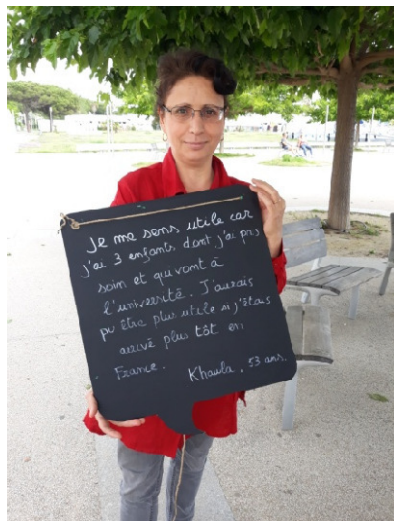 Je me sens utile car
j'ai 3 enfants dont j'ai pris
soin et qui vont à
l'université. J'aurais
pu être plus utile si j'étais
arrivé plus tôt en
France.
Khaula, 53 ans.